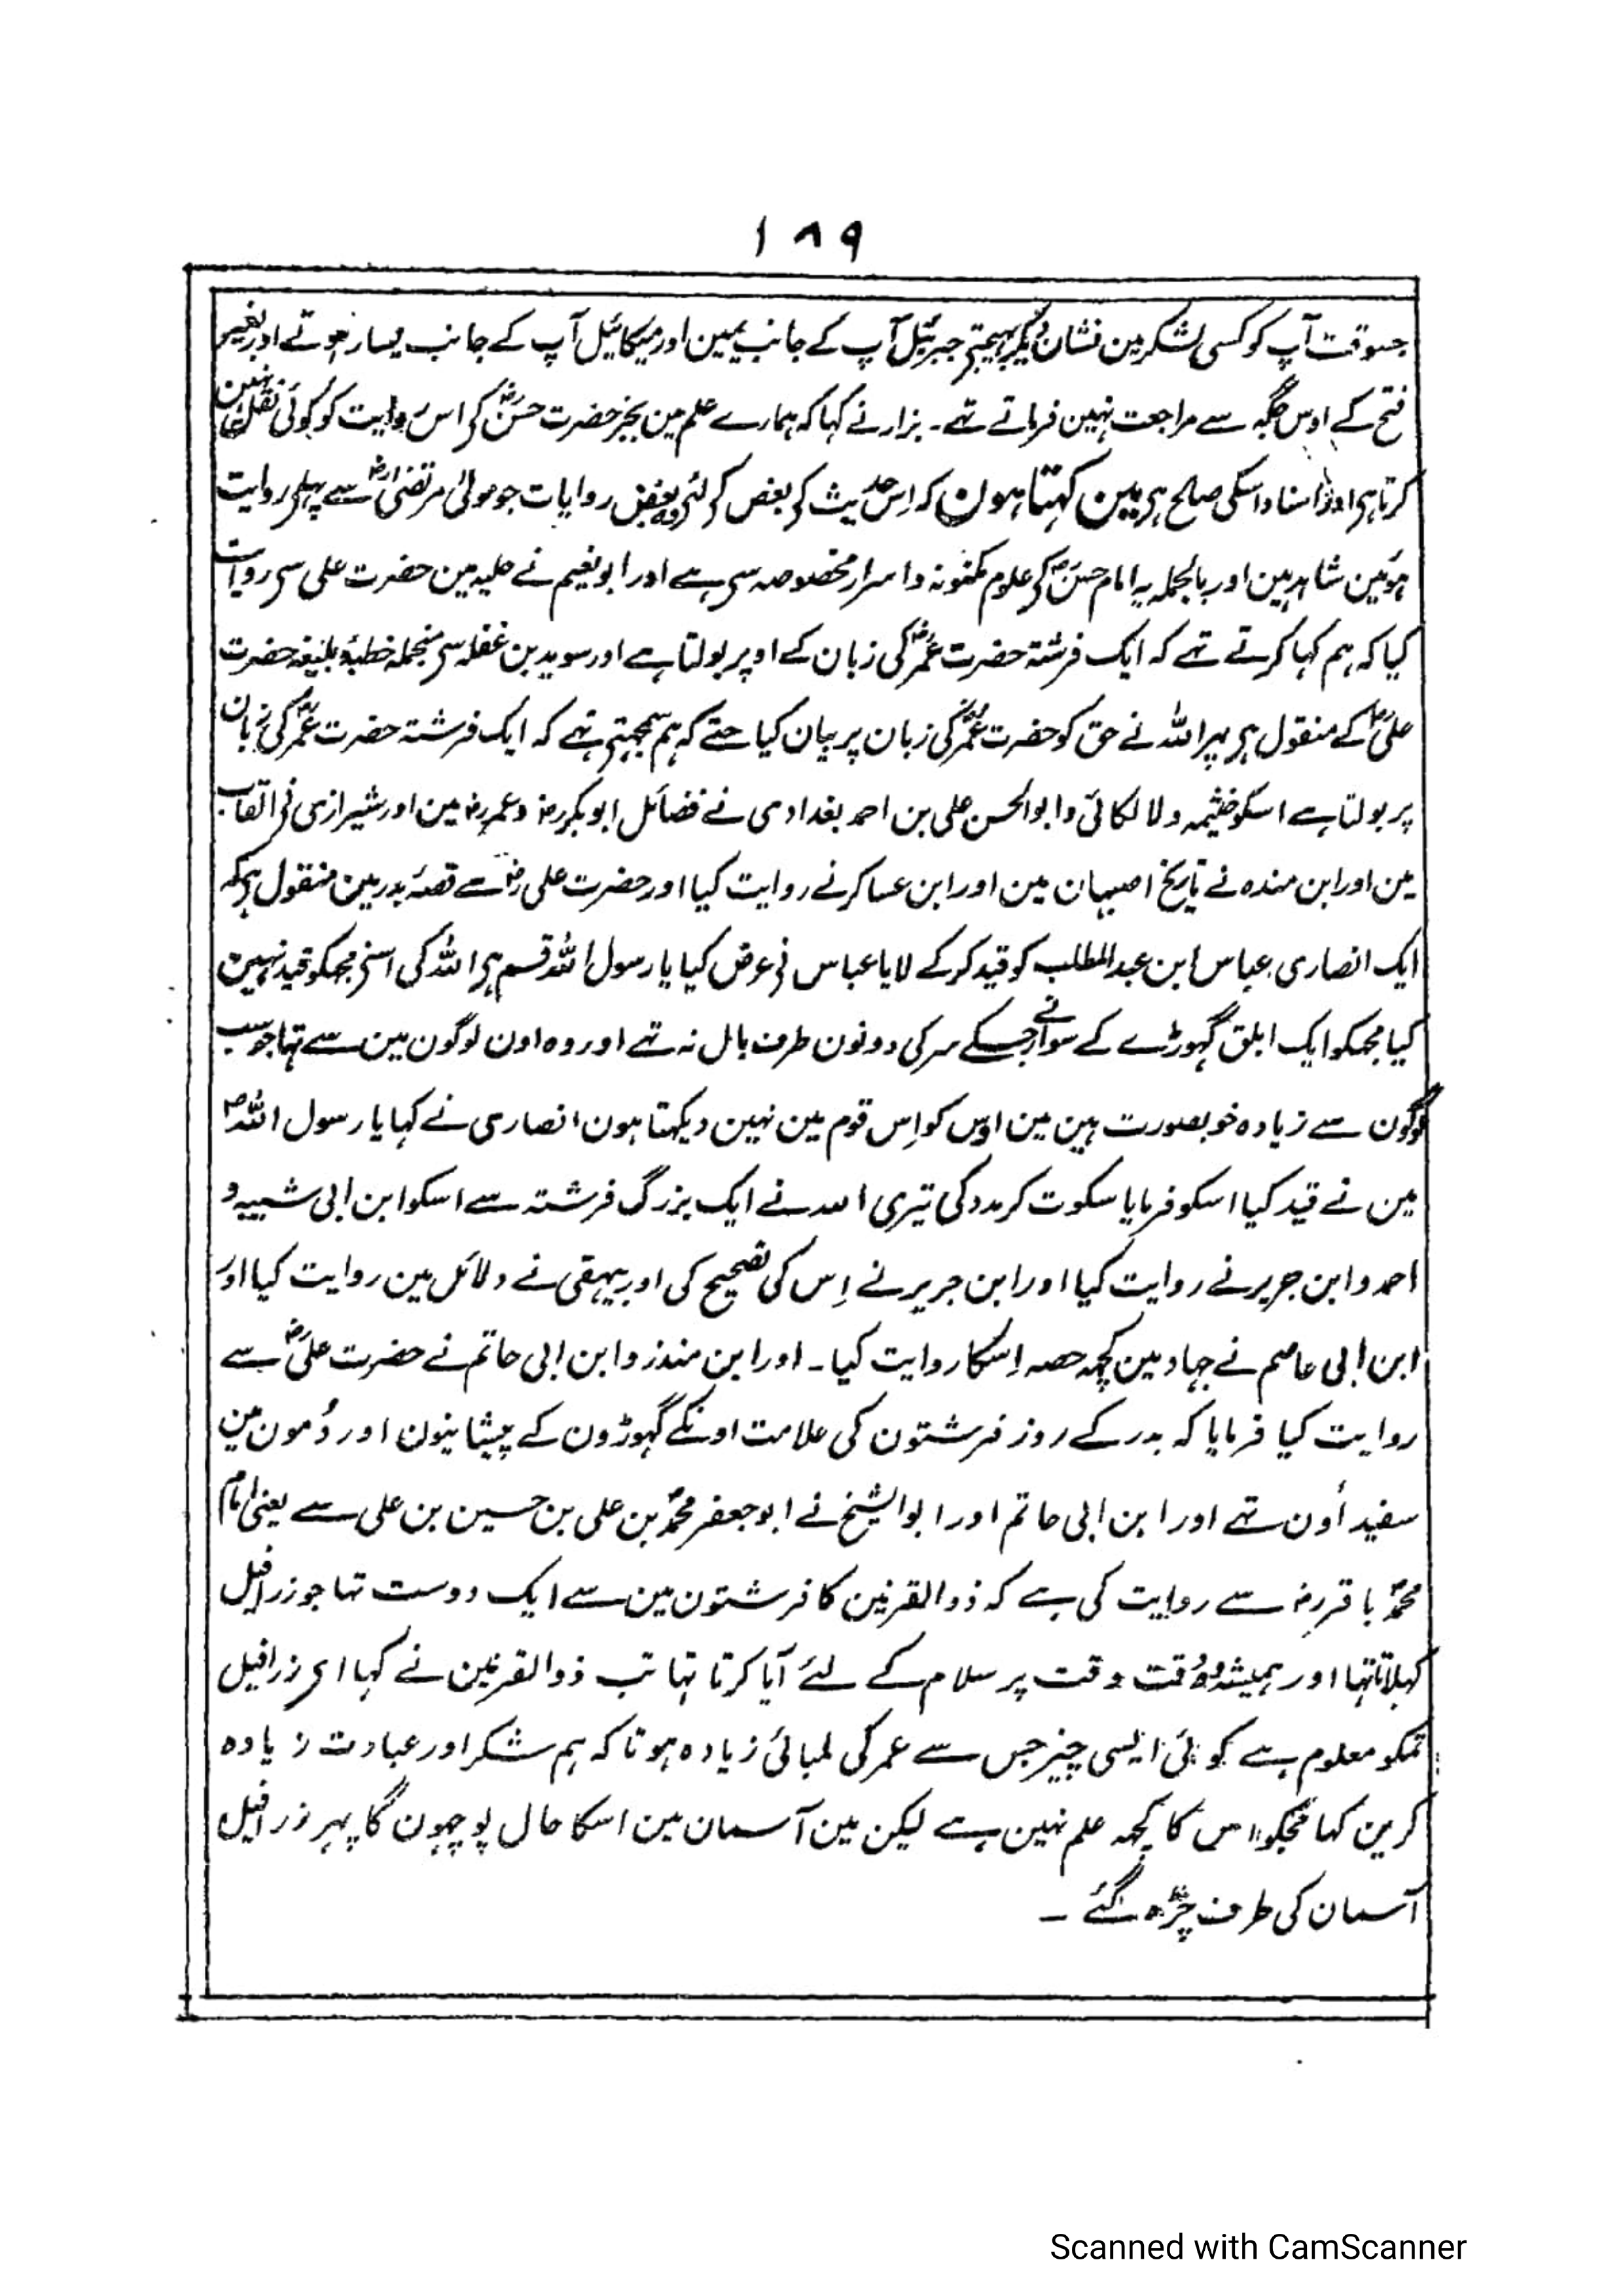 ۱۸۹
جسوقت آپ کو کسی لشکر مین نشان دیکر بہیجتے جبرئیل آپ کے جانب یمین اور میکائیل آپ کے جانب یسار ہوتے اور بغیر
فتح کے اوس جگہ سے مراجعت نہین فرماتے تہے۔ بزار نے کہا کہ ہمارے علم مین بجز حضرت حسنؓ کے اس روایت کو کوئی نقل نہین
کرتا ہی اور اسناد اسکی صالح ہی مین کہتا ہون کہ اِس حدیث کی بعض کے لئے بعض روایات جو مولیٰ مرتضیٰؓ سے پہلے روایت
ہوئین شاہد ہین اور بالجملہ یہ امام حسنؓ کے علوم مکنونہ و اسرار مخصوصہ سی ہے اور ابونعیم نے حلیہ مین حضرت علی سی روایت
کیا کہ ہم کہا کرتے تہے کہ ایک فرشتہ حضرت عمرؓ کی زبان کے اوپر بولتا ہے اور سوید بن غفلہ سی منجملہ خطبۂ بلیغہ حضرت
علیؓ کے منقول ہی پہر اللہ نے حق کو حضرت عمرؓ کی زبان پر بیان کیا حتے کہ ہم سمجہتے تہے کہ ایک فرشتہ حضرت عمرؓ کی زبان
پر بولتا ہے اسکو خثیمہ و لالکائی و ابوالحسن علی بن احمد بغدادی نے فضائل ابوبکررض و عمررض مین اور شیرازی نے القاب
مین اور ابن مندہ نے تاریخ اصبہان مین اور ابن عساکر نے روایت کیا اور حضرت علی رض سے قصۂ بدر مین منقول ہی کہ
ایک انصاری عباس ابن عبدالمطلب کو قید کر کے لایا عباس نے عرض کیا یا رسول اللہ قسم ہی اللہ کی اسنے مجہکو قید نہین
کیا مجہکو ایک ابلق گہوڑے کے سوار نے جسکے سر کی دونون طرف بال نہ تہے اور وہ اون لوگون مین سے تہا جو سب
لوگون سے زیادہ خوبصورت ہین مین اوس کو اِس قوم مین نہین دیکہتا ہون انصاری نے کہا یا رسول اللہؐ
مین نے قید کیا اسکو فرمایا سکوت کر مدد کی تیری اللہ نے ایک بزرگ فرشتہ سے اسکو ابن ابی شیبہ و
احمد و ابن جریر نے روایت کیا اور ابن جریر نے اِس کی تصحیح کی اور بیہقی نے دلائل مین روایت کیا اور
ابن ابی عاصم نے جہاد مین کچہہ حصہ اِسکا روایت کیا۔ اور ابن منذر و ابن ابی حاتم نے حضرت علیؓ سے
روایت کیا فرمایا کہ بدر کے روز فرشتون کی علامت اونکے گہوڑون کے پیشانیون اور دُمون مین
سفید اُون تہے اور ابن ابی حاتم اور ابوالشیخ نے ابوجعفر محمدؐ بن علی بن حسین بن علی سے یعنی امام
محمدؐ باقررض سے روایت کی ہے کہ ذوالقرنین کا فرشتون مین سے ایک دوست تہا جو زرافیل
کہلاتا تہا اور ہمیشہ وہ وقت وقت پر سلام کے لئے آیا کرتا تہا تب ذوالقرنین نے کہا ای زرافیل
تمکو معلوم ہے کوئی ایسی چیز جس سے عمر کی لمبائی زیادہ ہو تا کہ ہم شکر اور عبادت زیادہ
کرین کہا مجکو اس کا کچہہ علم نہین ہے لیکن مین آسمان مین اسکا حال پوچہون گا پہر زرافیل
آسمان کی طرف چڑہ گئے ۔
Scanned with CamScanner